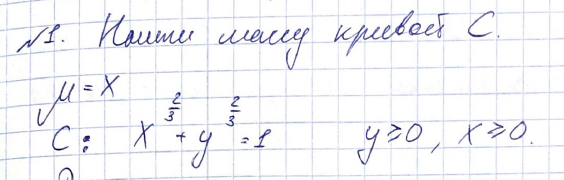 №1. Найти массу кривой C.
μ = x
C: x^(2/3) + y^(2/3) = 1 y ≥ 0, x ≥ 0.